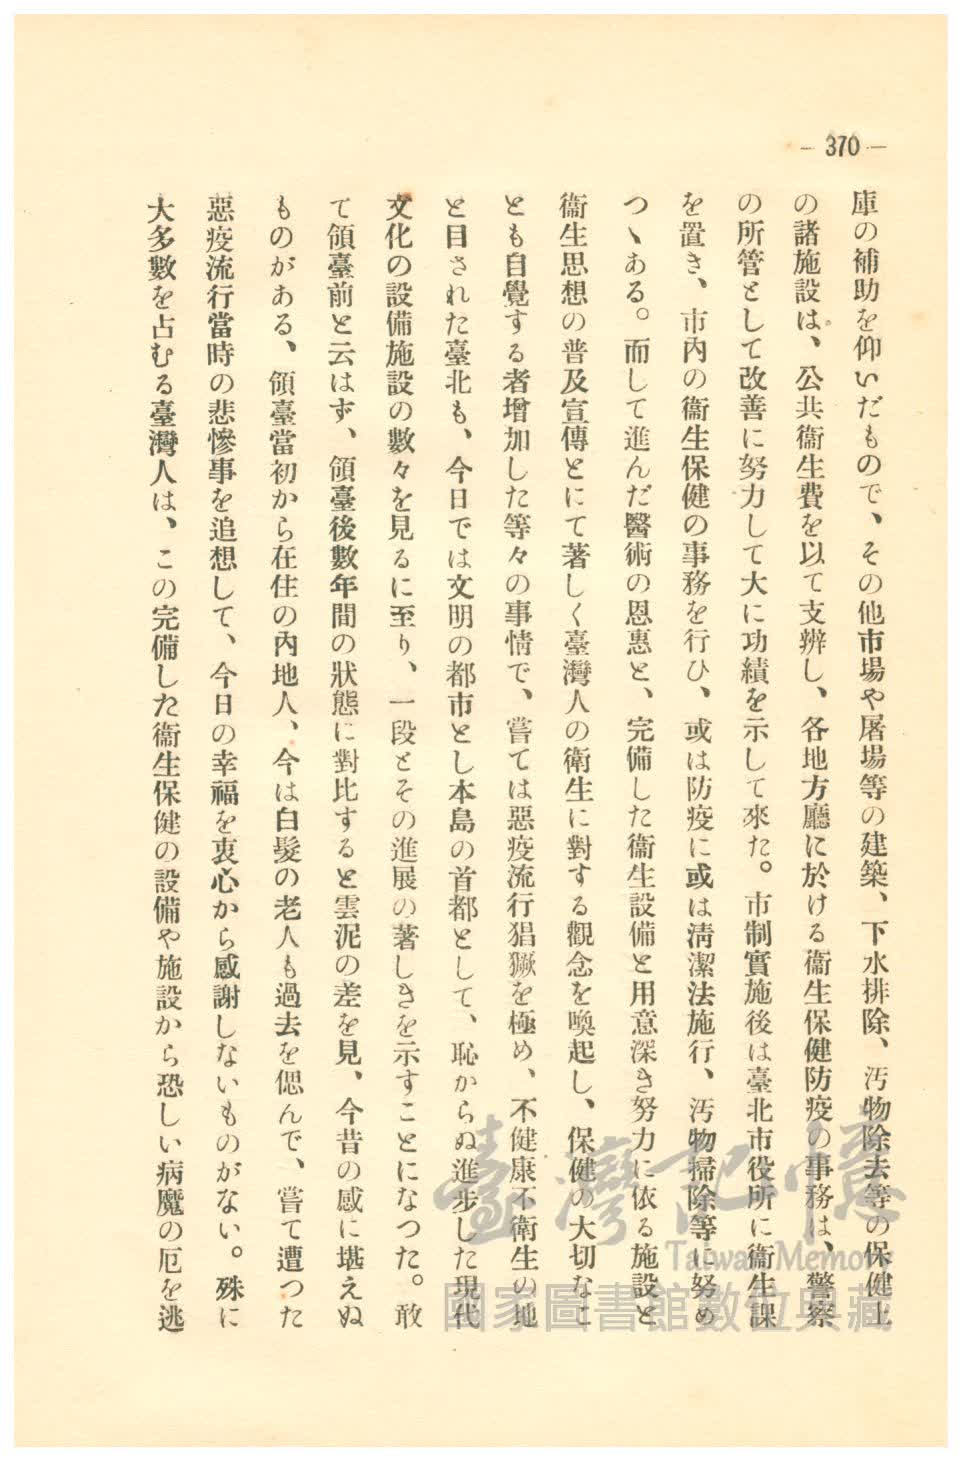 — 370 —
庫の補助を仰いだもので、その他市場や屠場等の建築、下水排除、汚物除去等の保健上
の諸施設は、公共衞生費を以て支辨し、各地方廳に於ける衞生保健防疫の事務は、警察
の所管として改善に努力して大に功績を示して來た。市制實施後は臺北市役所に衞生課
を置き、市內の衞生保健の事務を行ひ、或は防疫に或は淸潔法施行、汚物掃除等に努め
つゝある。而して進んだ醫術の恩惠と、完備した衞生設備と用意深き努力に依る施設と
衞生思想の普及宣傳とにて著しく臺灣人の衛生に對する觀念を喚起し、保健の大切なこ
とも自覺する者增加した等々の事情で、嘗ては惡疫流行猖獗を極め、不健康不衛生の地
と目された臺北も、今日では文明の都市とし本島の首都として、恥からぬ進步した現代
文化の設備施設の數々を見るに至り、一段とその進展の著しきを示すことになつた。敢
て領臺前と云はず、領臺後數年間の狀態に對比すると雲泥の差を見、今昔の感に堪えぬ
ものがある、領臺當初から在住の內地人、今は白髮の老人も過去を偲んで、嘗て遭つた
惡疫流行當時の悲慘事を追想して、今日の幸福を衷心から感謝しないものがない。殊に
大多數を占むる臺灣人は、この完備した衞生保健の設備や施設から恐しい病魔の厄を逃
臺灣記憶
Taiwan Memory
國家圖書館數位典藏